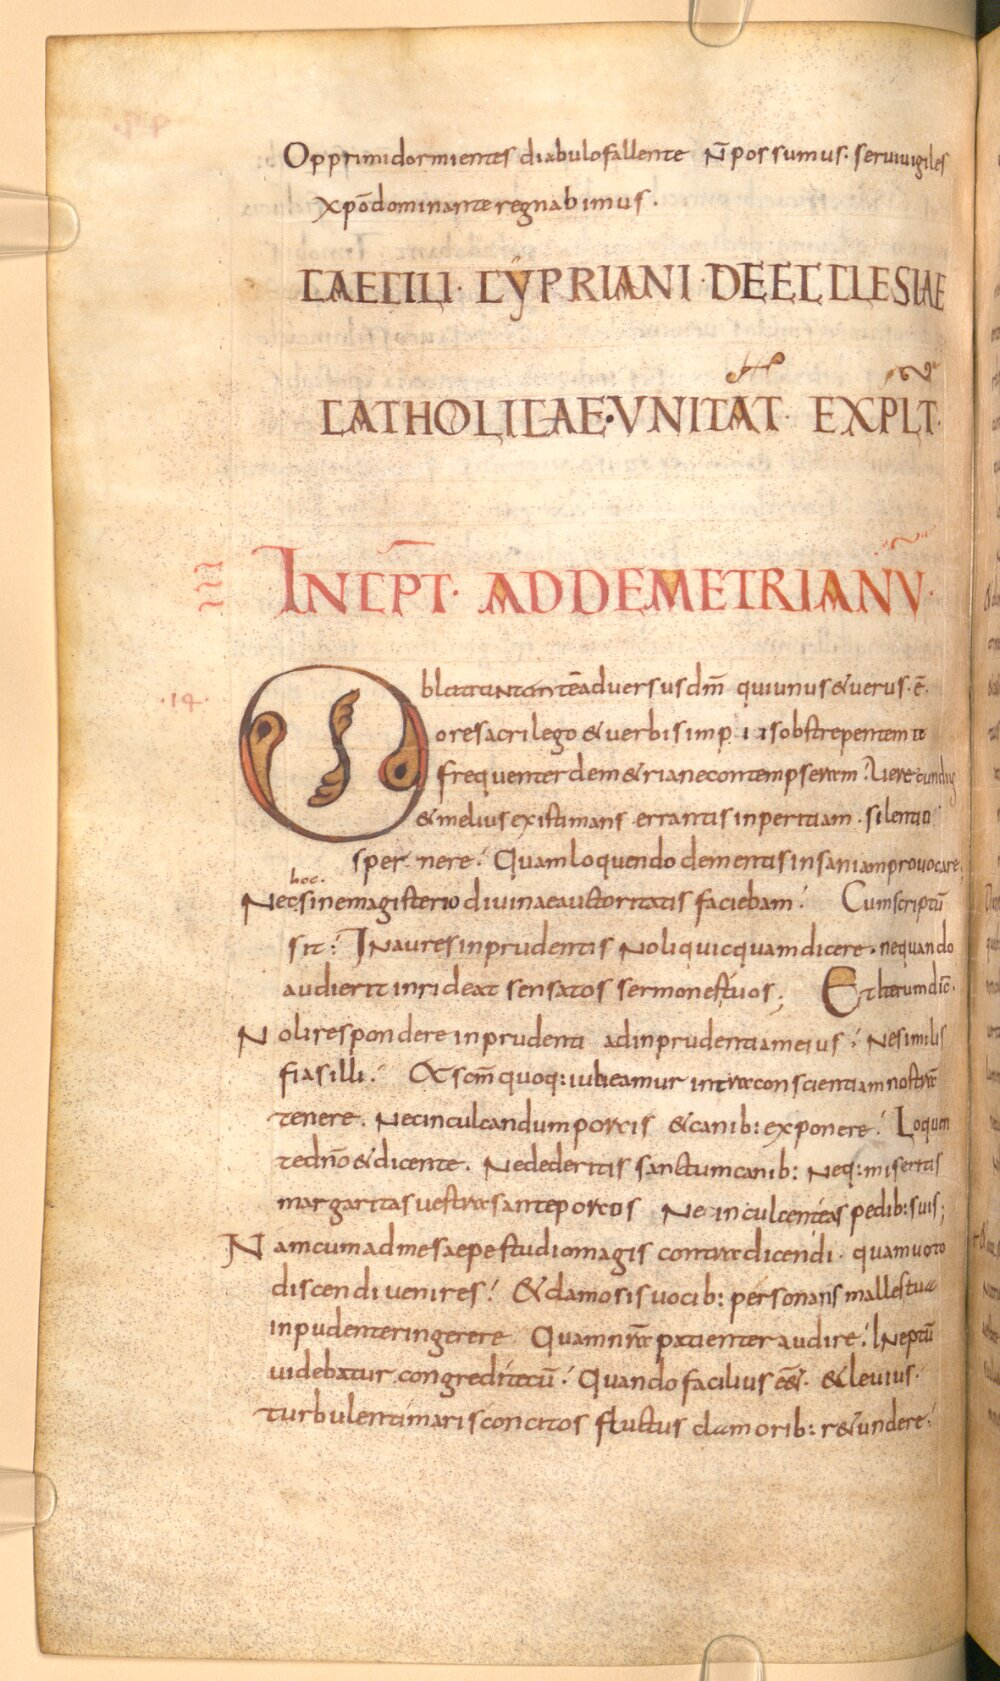 Opprimi dormientes diabulo fallente N̄ possumus. servi vigiles
xp̄o dominante regnabimus.
CAECILI. CYPRIANI. DE ECCLESIAE
CATHOLICAE. VNITAT. EXPLT.
III INCPT̄. AD DEMETRIANV̄.
.14. Oblatrantem te adversus dm̄ qui unus & uerus. ē.
ore sacrilego & uerbis impiis obstrepentem te
frequenter dem&riane contempseram. Uerecundius
& melius existimans errantis inpertiam. silentio
spernere. Quam loquendo dementis insaniam provocare;
hoc.
Nec sine magisterio divinae auctoritatis faciebam. Cum scriptū
sit: In aures inprudentis Noli quicquam dicere. ne quando
audierit inrideat sensatos sermones tuos; Et iterum dic̄.
Noli respondere inprudenti ad inprudentiam eius. Ne similis
fias illi. & sc̄m quoq: iubeamur intra conscientiam nostrā
tenere. Nec inculcandum porcis & canib: exponere. Loquen
te dn̄o & dicente. Ne dederitis sanctum canib: Neq: miseritis
margaritas vestras ante porcos Ne inculcent eas pedib: suis;
Nam cum ad me saepe studio magis contradicendi. quam uoto
discendi venires. & clamosis vocib: personans malles tua
inpudenter ingerere Quam nr̄a patienter audire. Ineptū
videbatur congredi tecū. Quando facilius eē&. & levius.
turbulenti maris concitos fluctus clamorib: r&undere.